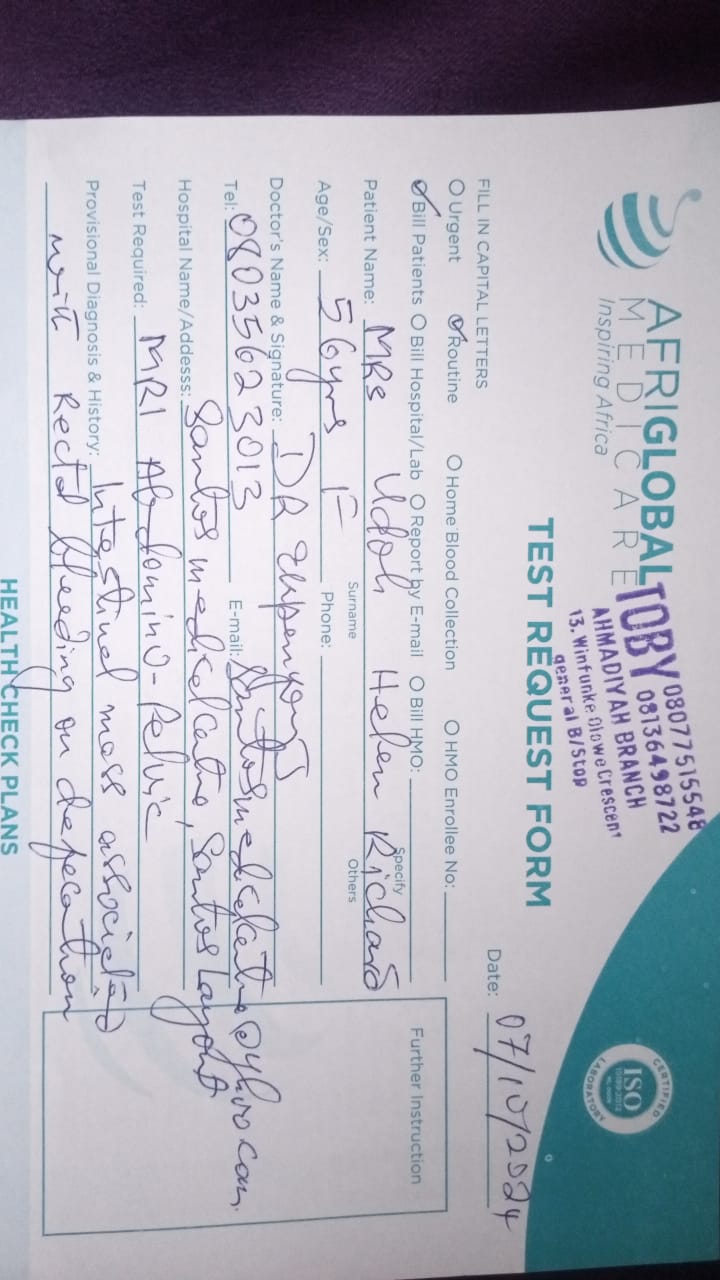 AFRIGLOBAL
MEDICARE
Inspiring Africa
TOBY 08077515548
08136498722
AHMADIYAH BRANCH
13, Winfunke Olowe Crescent
general B/Stop
CERTIFIED
ISO
LABORATORY
TEST REQUEST FORM
Date: 07/10/2024
FILL IN CAPITAL LETTERS
Urgent Routine Home Blood Collection HMO Enrollee No:
Bill Patients Bill Hospital/Lab Report by E-mail Bill HMO:
Specify
Further Instruction
Patient Name: MRS Udoh Helen Richard
Surname Others
Age/Sex: 56yrs F Phone:
Doctor's Name & Signature: DR
Tel: 08035623013 E-mail:
Hospital Name/Addesss: Santos medical Centre, Santos Layout
Test Required: MRI Abdomino-Pelvic
Provisional Diagnosis & History: Intestinal mass associated
with Rectal bleeding on defecation
HEALTH CHECK PLANS